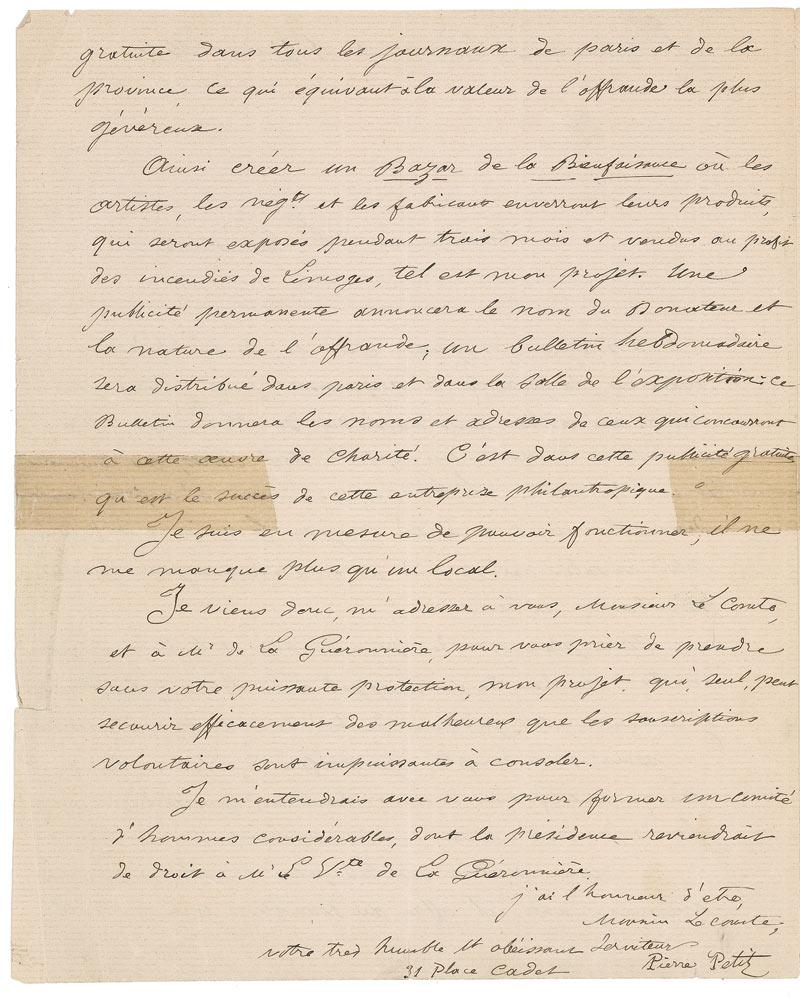 gratuite dans tous les journaux de paris et de la
province ce qui équivaut à la valeur de l'offrande la plus
généreux.
Ainsi créer un Bazar de la Bienfaisance où les
artistes, les négts et les fabricants enverront leurs produits,
qui seront exposés pendant trois mois et vendus au profit
des incendiés de Limoges, tel est mon projet. Une
publicité permanente annoncera le nom du Donateur et
la nature de l'offrande; un bulletin hebdomadaire
sera distribué dans paris et dans la salle de l'exposition: ce
Bulletin donnera les noms et adresses de ceux qui concourront
à cette œuvre de Charité. C'est dans cette publicité gratuite
qu'est le succès de cette entreprise philantropique.
Je suis en mesure de pouvoir fonctionner, il ne
me manque plus qu'un local.
Je viens donc, m'adresser à vous, Monsieur Le Comte,
et à Mr de La Guéronnière, pour vous prier de prendre
sous votre puissante protection, mon projet, qui, seul, peut
secourir efficacement des malheureux que les souscriptions
volontaires sont impuissantes à consoler.
Je m'entendrais avec vous pour former un comité
d'hommes considérables, dont la présidence reviendrait
de droit à Mr le Vte de La Guéronnière.
j'ai l'honneur d'etre,
Monsieur Le comte,
votre tres humble et obéissant Serviteur
Pierre Petit
31 Place Cadet